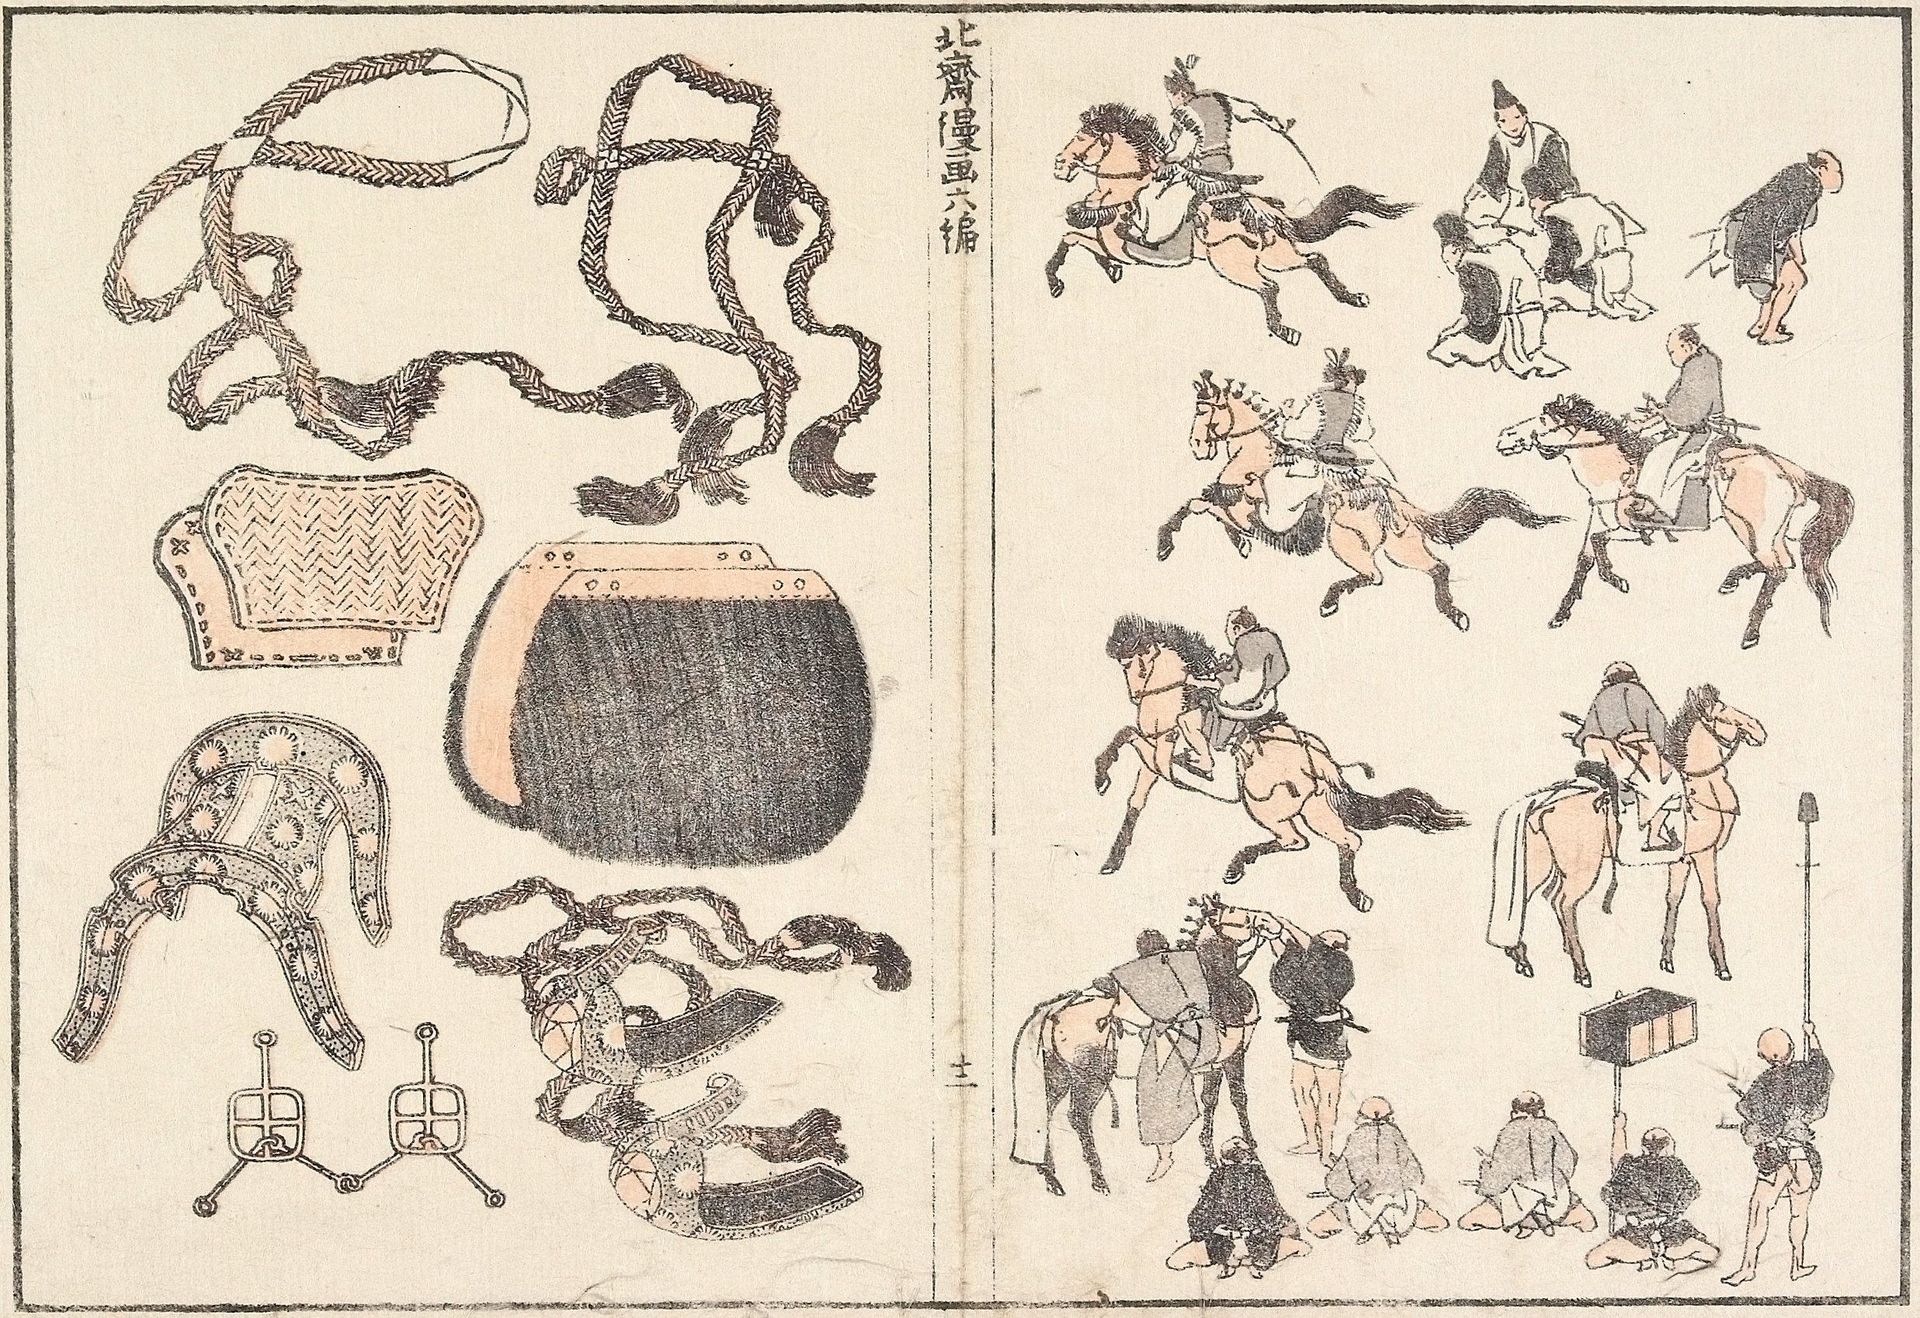 北齋漫画六編
十二